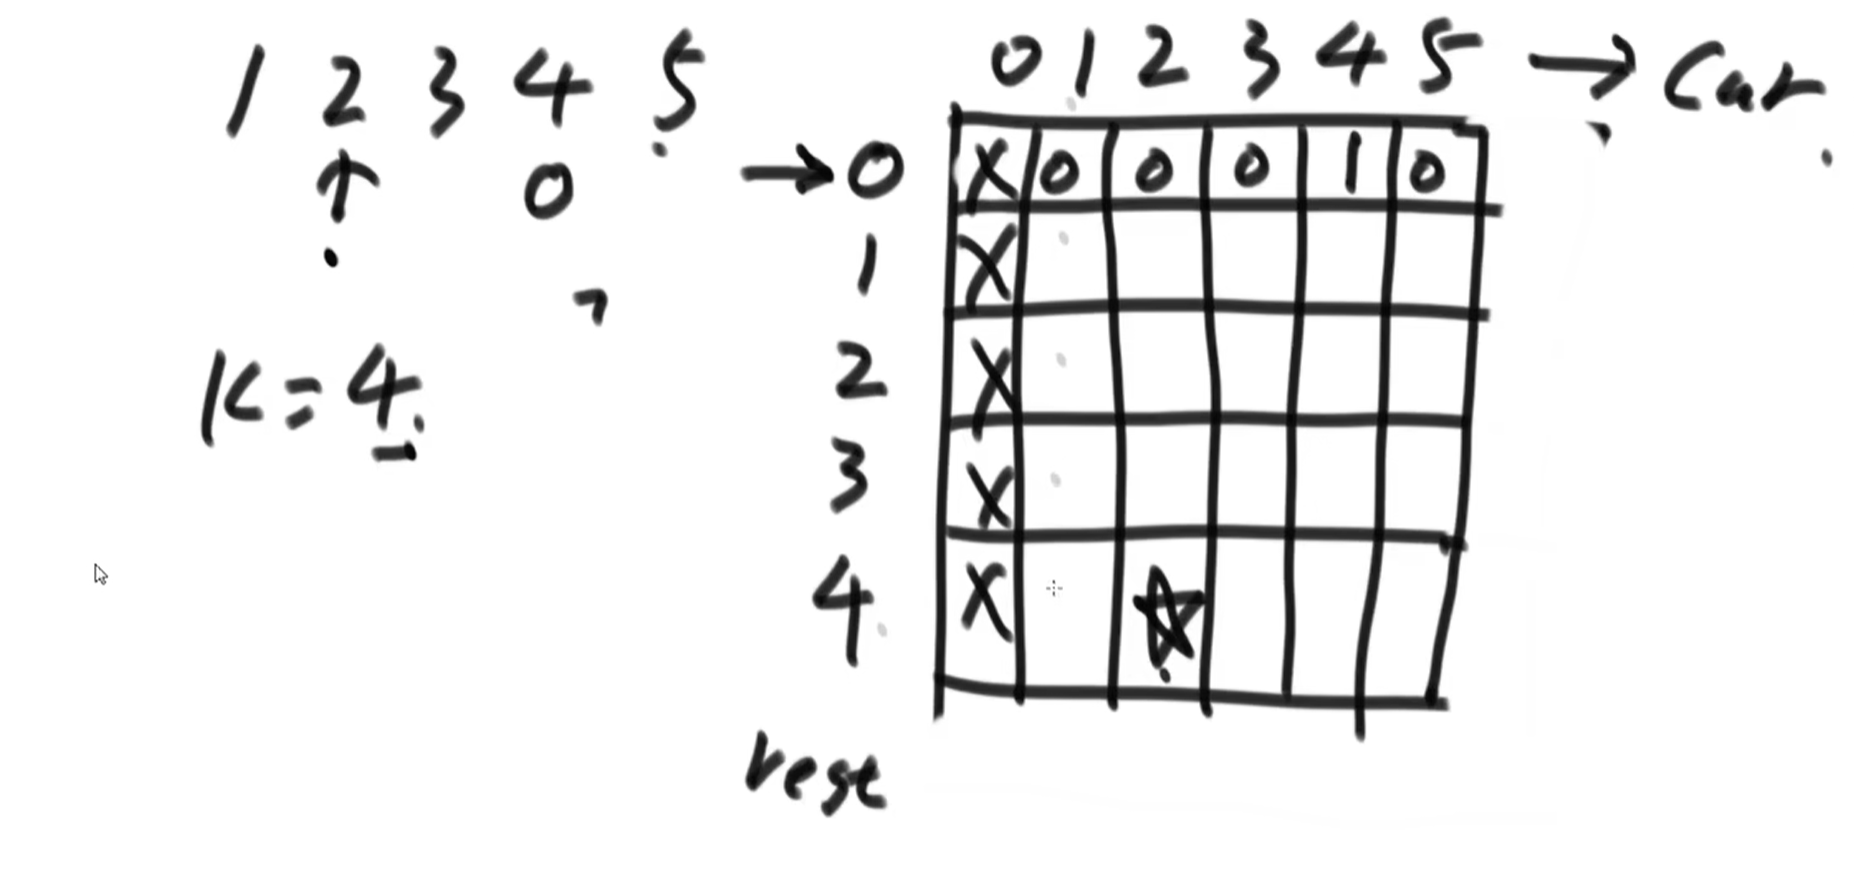 1 2 3 4 5
↑ 0
K=4
0 1 2 3 4 5 → Cur
→ 0 X 0 0 0 1 0
1 X
2 X
3 X
4 X ☆
rest